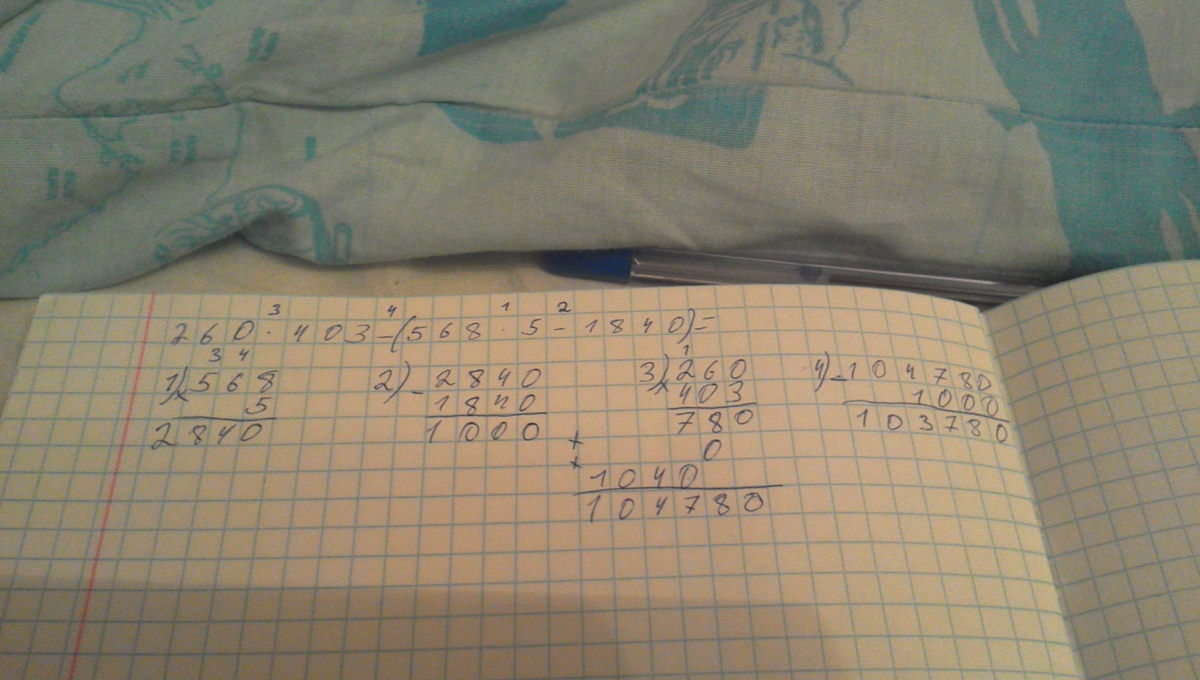 3 4 1 2
260 · 403 - (568 · 5 - 1840) =
3 4
1) × 568
5
2840
2) - 2840
1840
1000
1
3) × 260
403
780
+ 0
+ 1040
104780
4) - 104780
1000
103780